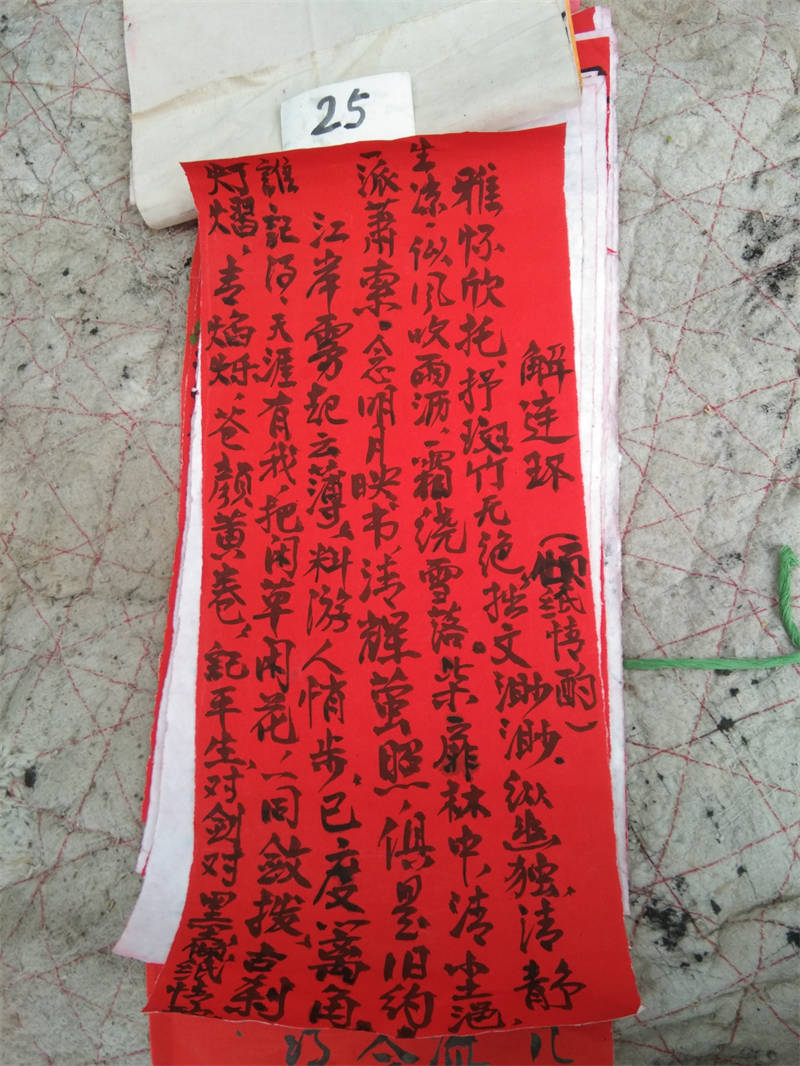 25
解连环 (倾纸情酌)
雅怀欣托、抒斑竹无绝、拙文渺渺。纵幽独、清静
生凉、似风吹雨沥、霜绕雪落。柴扉林中、清尘浥、
一派萧索。念明月映书、清辉萤照、俱是旧约
江岸雾起云薄、料游人悄步、已度篱角、
誰記得、天涯有我、把闲草闲花、一同敛拨、古刹
灯熠、青焰烁、苍颜黄卷、記平生、对剑对墨、倾纸情